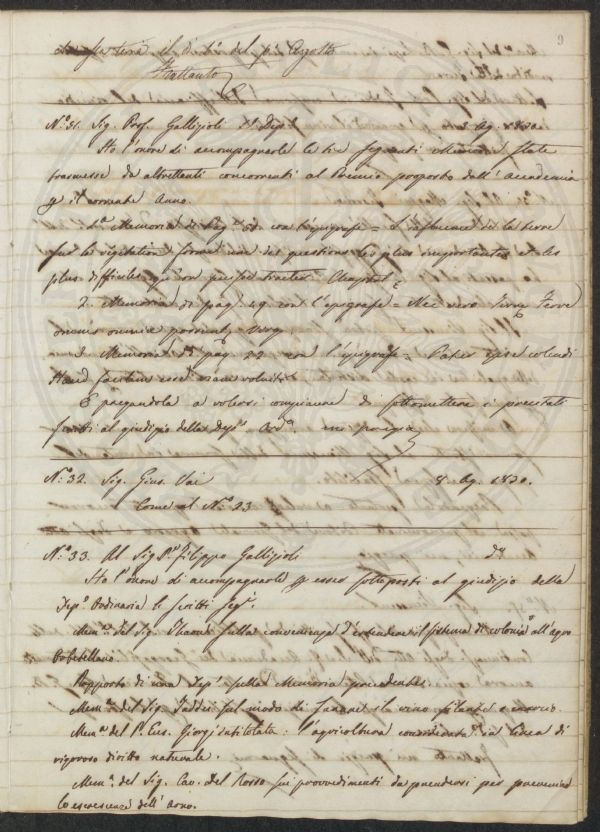 9
terrà il dì del p.º Agosto
Frattanto
N.º 31. Sig. Prof. Gallizioli Dep. Ag. 1830.
Ho l'onore di accompagnarle le tre seguenti Memorie state
trasmesse da altrettanti concorrenti al Premio proposto dall'Accademia
il corrente Anno.
1.ª Memoria di Pag. con l'epigrafe = L'influence de la terre
sur la végétation forme une des questions les plus importantes et les
plus difficiles qu'on puisse traiter. Chaptal
2. Memoria di pag. 49 con l'epigrafe = Nec vero terrae ferre
omnes omnia possunt. Virg.
3 Memoria di pag. 22 con l'epigrafe = Pater ipse colendi
Haud facilem esse viam voluit
E pregandola a volersi compiacere di sottomettere i precitati
scritti al giudizio della Dep.ª Ord.ª mi pregio
N.º 32. Sig. Gius. Vai 8. Ag. 1830.
Come al N.º 23
N.º 33. Al Sig. P.e Filippo Gallizioli D.º
Ho l'onore di accompagnarle esser sottoposti al giudizio della
Dep.e Ordinaria le scritti seg.i
Mem.ª del Sig. Thaon sulla convenienza d'estendere il sistema di colonia all'agro
Orbetellano.
Rapporto di una Dep.e sulla Memoria precedente.
Mem.ª del Sig. Taddei sul modo di sanare il vino filante e cercone.
Mem.ª del P. Eus. Giorgi intitolata: l'agricoltura considerata in linea di
rigoroso diritto naturale.
Mem.ª del Sig. Cav. Del Rosso sui provvedimenti da prendersi per prevenire
le escrescenze dell'Arno.